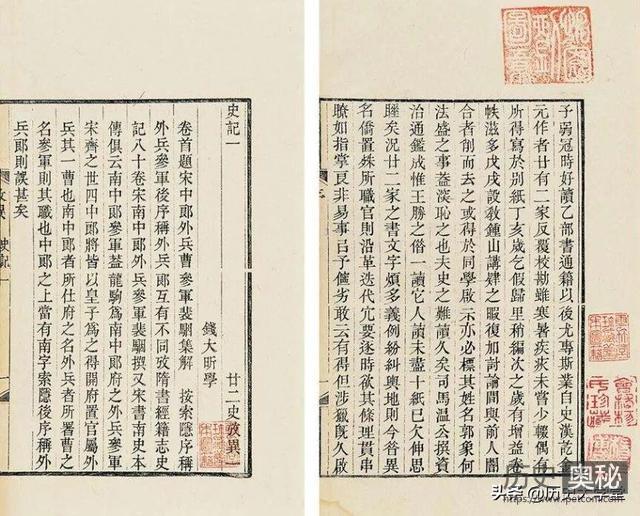 予弱冠時好讀乙部書通籍以後尤專斯業自史漢訖金
元作者廿有二家反覆校勘雖寒暑疾疢未嘗少輟偶有
所得寫於別紙丁亥歲乞假歸里稍編次之歲有增益卷
帙滋多戊戌設教鍾山講肄之暇復加討論間與前人闇
合者削而去之或得於同學啟示亦必標其姓名郭象何
法盛之事葢深恥之也夫史之難讀久矣司馬温公撰資
治通鑑成惟王勝之借一讀它人讀未盡十紙已欠伸思
睡矣況廿二家之書文字煩多義例紛糾輿地則今昔異
名僑置殊所職官則沿革迭代冗要逐時欲其條理貫串
瞭如指掌良非易事㠯予儜劣敢云有得但涉獵旣久啟
廿二史攷異一
錢大昕學
史記一
卷首題宋中郎外兵曹參軍裴駰集解　按索隱序稱
外兵參軍後序稱外兵郎互有不同攷隋書經籍志史
記八十卷宋南中郎外兵參軍裴駰撰又宋書南史本
傳俱云南中郎參軍葢龍駒爲南中郎府之外兵參軍
宋齊之世四中郎將皆以皇子爲之得開府置官屬外
兵其一曹也南中郎者所仕府之名外兵者所署曹之
名參軍則其職也中郎之上當有南字索隱後序稱外
兵郎則誤甚矣
历史奥秘
头条 @历史